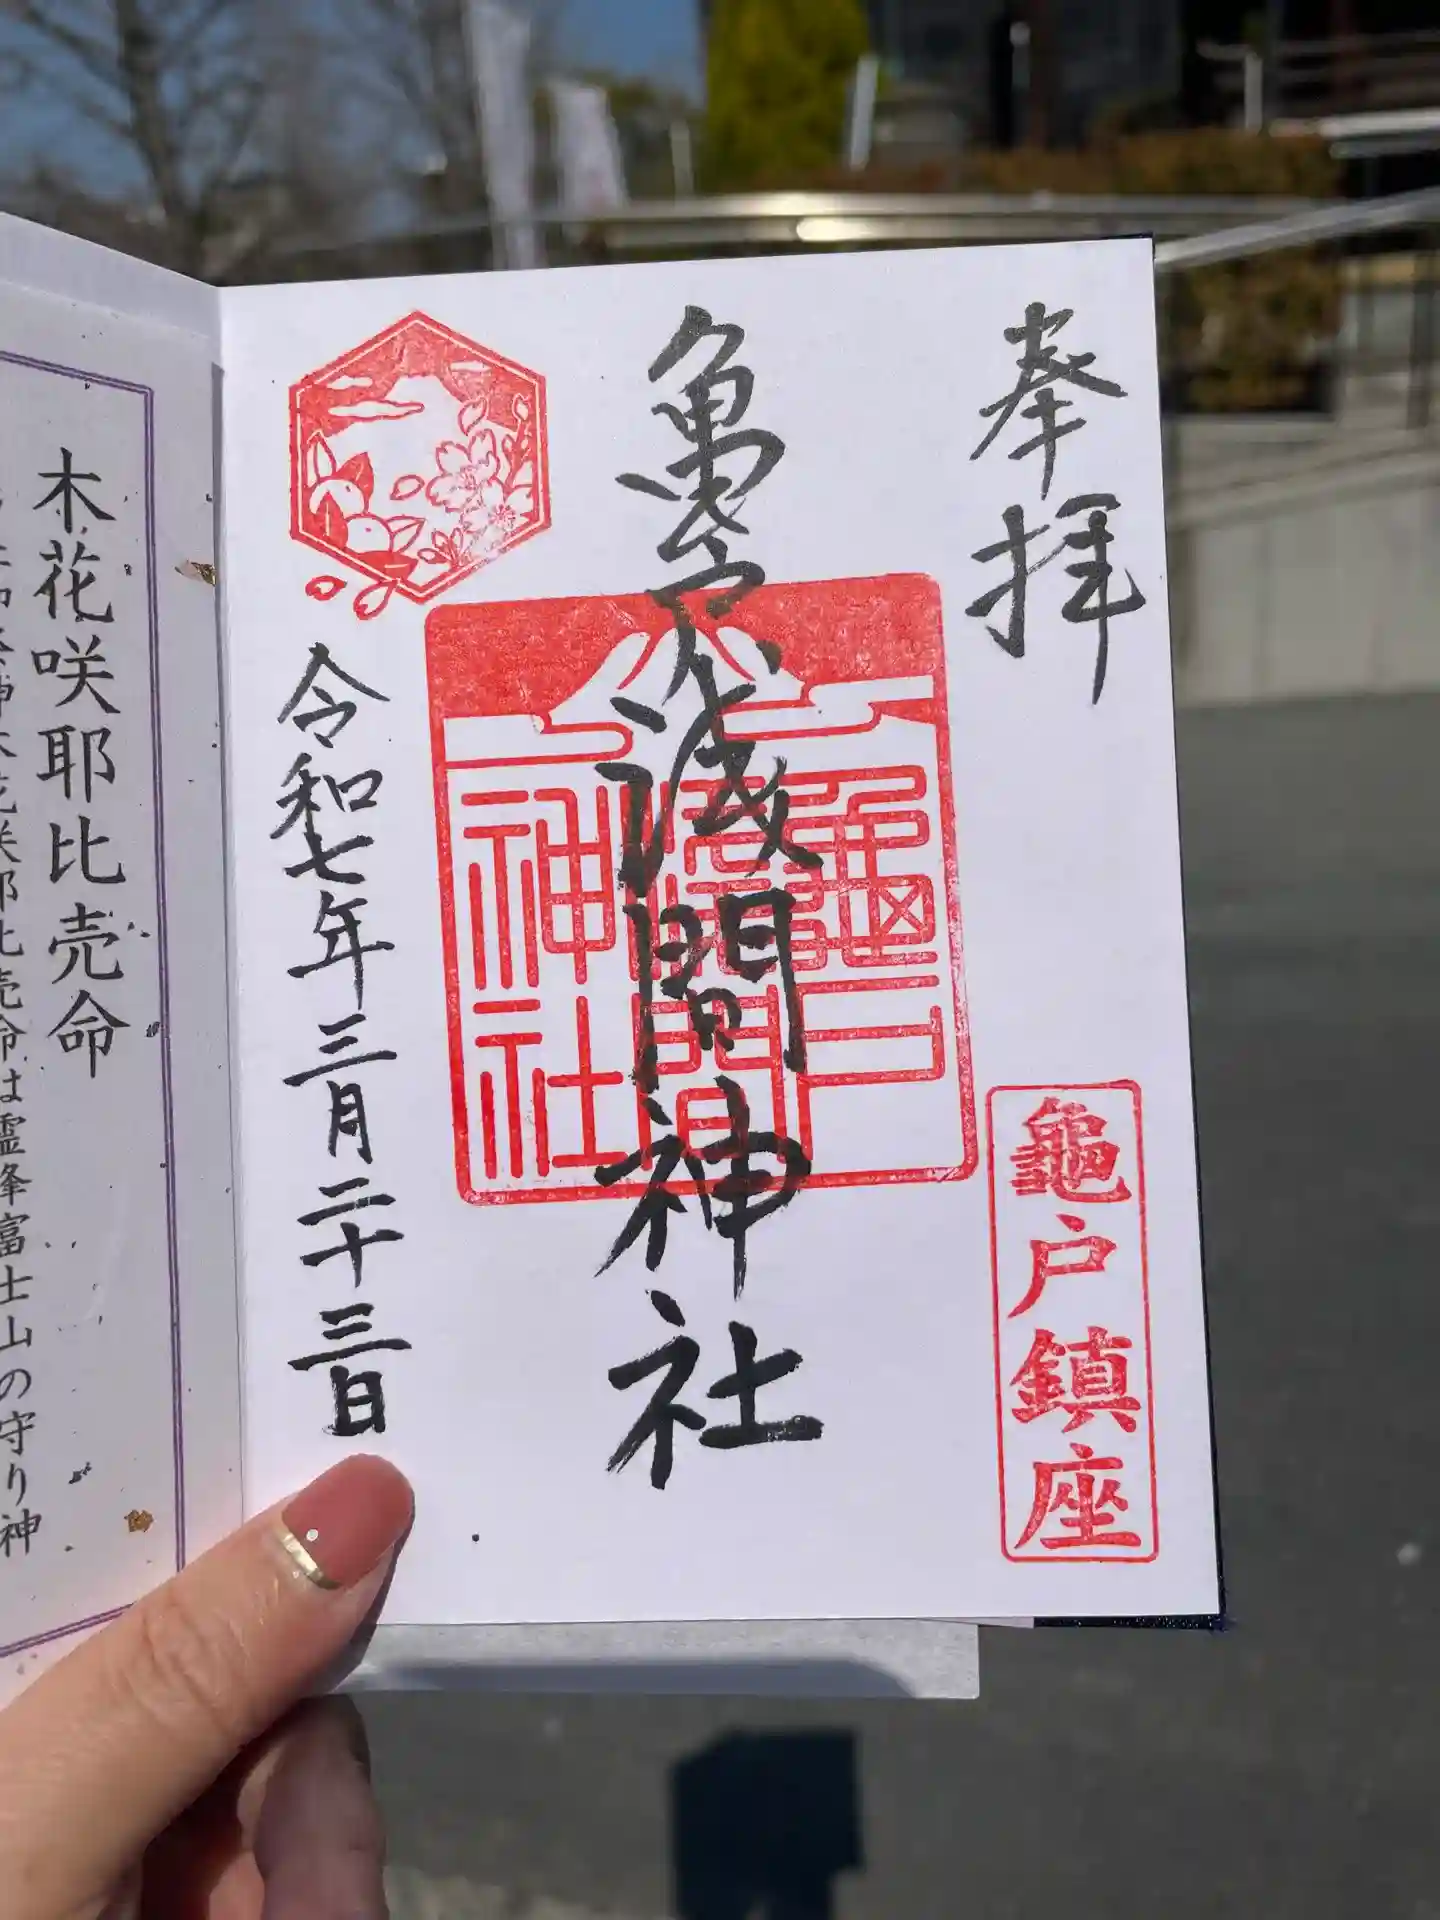 奉拝
龜戸鎮座
亀戸浅間神社
龜戸
淺間
神社
令和七年三月二十三日
木花咲耶比売命
木花咲耶比売命は霊峰富士山の守り神